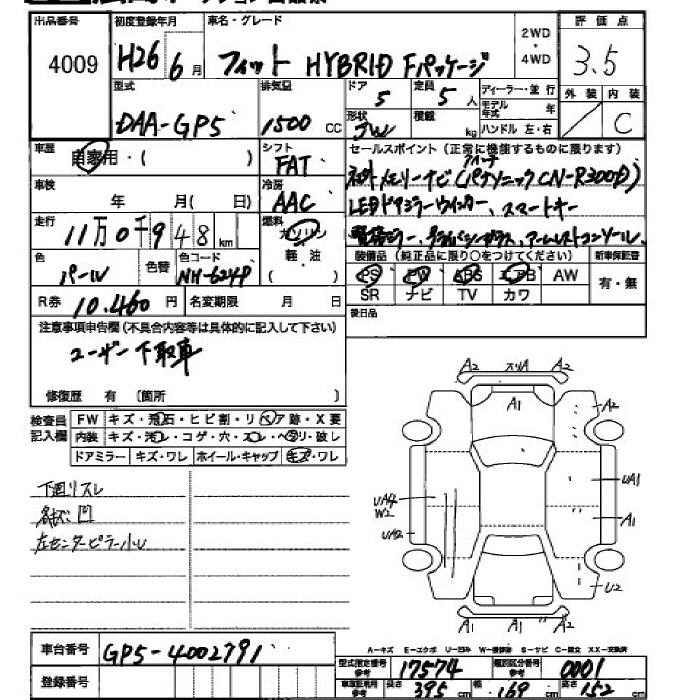 出品番号 初度登録年月 車名・グレード 2WD・4WD 評価点
4009 H26 6月 フィット HYBRID Fパッケージ 3.5
型式 排気量 ドア 定員 ディーラー・並行 外装 内装
DAA-GP5 1500 CC 5 5人 モデル年式 年
形状 積載 kg ハンドル 左・右 C
車歴 自家用・( ) シフト FAT セールスポイント(正常に機能するものに限ります)
車検 年 月( 日) 冷房 AAC 社外メモリーナビ(パナソニック CN-R300D)
LEDドアミラーウインカー、スマートキー
走行 11万0千948km 燃料 ガソリン 軽油 ( )
アームレストコンソール
色 パール 色替 色コード NH-624P
装備品(純正品に限り○をつけてください) 新車保証書
PS PW ABS エアB AW 有・無
SR ナビ TV カワ
R券 10,460円 名変期限 月 日
後日品
注意事項申告欄(不具合内容等は具体的に記入して下さい)
ユーザー下取車
修復歴 有 〔箇所 〕
検査員記入欄 FW キズ・飛石・ヒビ割・リペア跡・X要
内装 キズ・汚レ・コゲ・穴・スレ・ヘタリ・破レ
ドアミラー キズ・ワレ ホイール・キャップ キズ・ワレ
下廻リスレ
凹
左センターピラー小U
A2 スリA A2
A1 A2
UA4 UA1
W2 A1
UA2
U2
A2 A1 A2
A-キズ E-エクボ U-凹み W-補修跡 S-サビ C-腐食 XX-交換済
車台番号 GP5-4002791 型式指定番号 参考 17574 類別区分番号 参考 0001
登録番号 車庫証明用 参考 長さ 395cm 幅 169cm 高さ 152cm